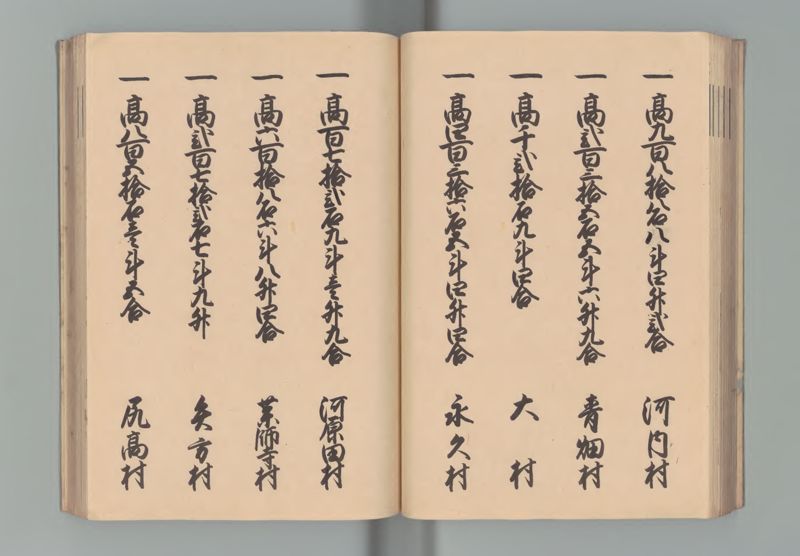 一 高九百八拾八石八斗四升弐合 河内村
一 高弐百三拾五石五斗六升九合 青畑村
一 高千弐拾石九斗四合 大村
一 高四百三拾六石五斗四升四合 永久村
一 高百七拾弐石九斗壱升九合 河原田村
一 高六百拾八石六斗八升四合 薬師寺村
一 高弐百七拾弐石七斗九升 矢方村
一 高八百五拾石壱斗五合 尻高村